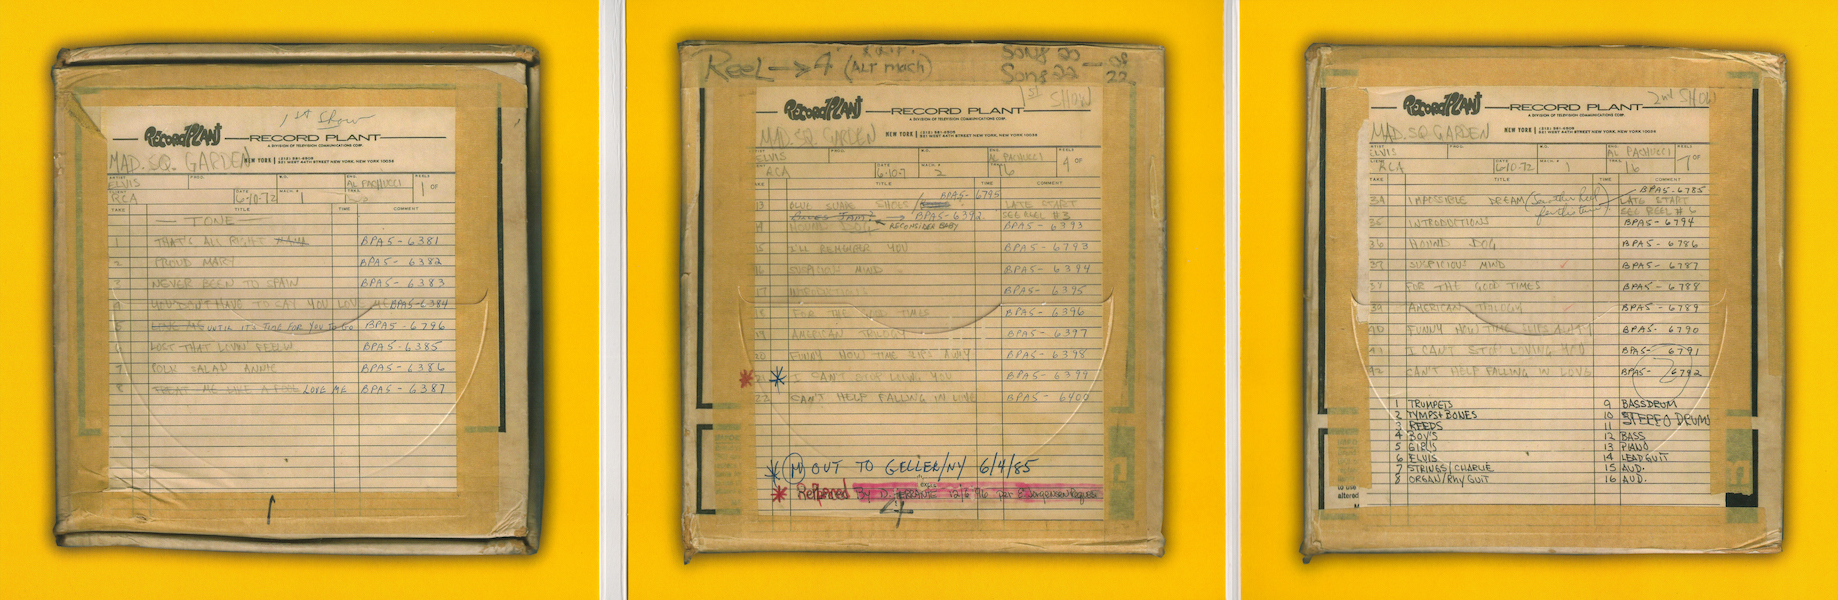 1st Show
Record Plant
RECORD PLANT
A DIVISION OF TELEVISION COMMUNICATIONS CORP.
MAD. SQ. GARDEN
NEW YORK
321 WEST 44TH STREET NEW YORK, NEW YORK 10036
ARTIST
ELVIS
PROD.
W.O.
ENG.
AL PACHUCCI
REELS
1 OF
RCA
DATE
6-10-72
MACH. #
1
TAKE
TITLE
TIME
COMMENT
— TONE —
1 THAT'S ALL RIGHT BPA5-6381
2 PROUD MARY BPA5-6382
3 NEVER BEEN TO SPAIN BPA5-6383
4 YOU DON'T HAVE TO SAY YOU LOVE ME BPA5-6384
5 LOVE ME UNTIL IT'S TIME FOR YOU TO GO BPA5-6796
6 LOST THAT LOVIN FEELIN BPA5-6385
7 POLK SALAD ANNIE BPA5-6386
8 TREAT ME LIKE A FOOL LOVE ME BPA5-6387
1
REEL → 4 (ALT mach)
Song 20
Song 22
22
1st SHOW
Record Plant
RECORD PLANT
A DIVISION OF TELEVISION COMMUNICATIONS CORP.
MAD. SQ. GARDEN
NEW YORK
321 WEST 44TH STREET NEW YORK, NEW YORK 10036
ELVIS
PROD.
W.O.
ENG.
AL PACHUCCI
REELS
4 OF
RCA
DATE
6-10-7
MACH. #
2
16
TITLE
TIME
COMMENT
BPA5-6795
13 BLUE SUEDE SHOES LATE START
BPA5-6392 SEE REEL #3
14 HOUND DOG RECONSIDER BABY BPA5-6393
15 I'LL REMEMBER YOU BPA5-6793
16 SUSPICIOUS MIND BPA5-6394
17 INTRODUCTIONS BPA5-6395
18 FOR THE GOOD TIMES BPA5-6396
19 AMERICAN TRILOGY BPA5-6397
20 FUNNY HOW TIME SLIPS AWAY BPA5-6398
* 21 * I CAN'T STOP LOVING YOU BPA5-6399
22 CAN'T HELP FALLING IN LOVE BPA5-6400
* (M) OUT TO GELLER/NY 6/4/85
* Returned By D. 12/6
4
2nd SHOW
Record Plant
RECORD PLANT
A DIVISION OF TELEVISION COMMUNICATIONS CORP.
MAD. SQ. GARDEN
NEW YORK
321 WEST 44TH STREET NEW YORK, NEW YORK 10036
ELVIS
PROD.
W.O.
ENG.
AL PACHUCCI
REELS
7 OF
RCA
DATE
6-10-72
MACH. #
1
16
TITLE
TIME
COMMENT
BPA5-6785
34 IMPOSSIBLE DREAM LATE START
SEE REEL # 6
35 INTRODUCTIONS BPA5-6794
36 HOUND DOG BPA5-6786
37 SUSPICIOUS MIND BPA5-6787
38 FOR THE GOOD TIMES BPA5-6788
39 AMERICAN TRILOGY BPA5-6789
40 FUNNY HOW TIME SLIPS AWAY BPA5-6790
41 I CAN'T STOP LOVING YOU BPA5-6791
42 CAN'T HELP FALLING IN LOVE BPA5-6792
1 TRUMPETS 9 BASSDRUM
2 TYMPS+BONES 10 STEREO DRUM
3 REEDS 11
4 BOY'S 12 BASS
5 GIRLS 13 PIANO
6 ELVIS 14 LEAD GUIT
7 STRINGS/CHARLIE 15 AUD.
8 ORGAN/RHY GUIT 16 AUD.
altered